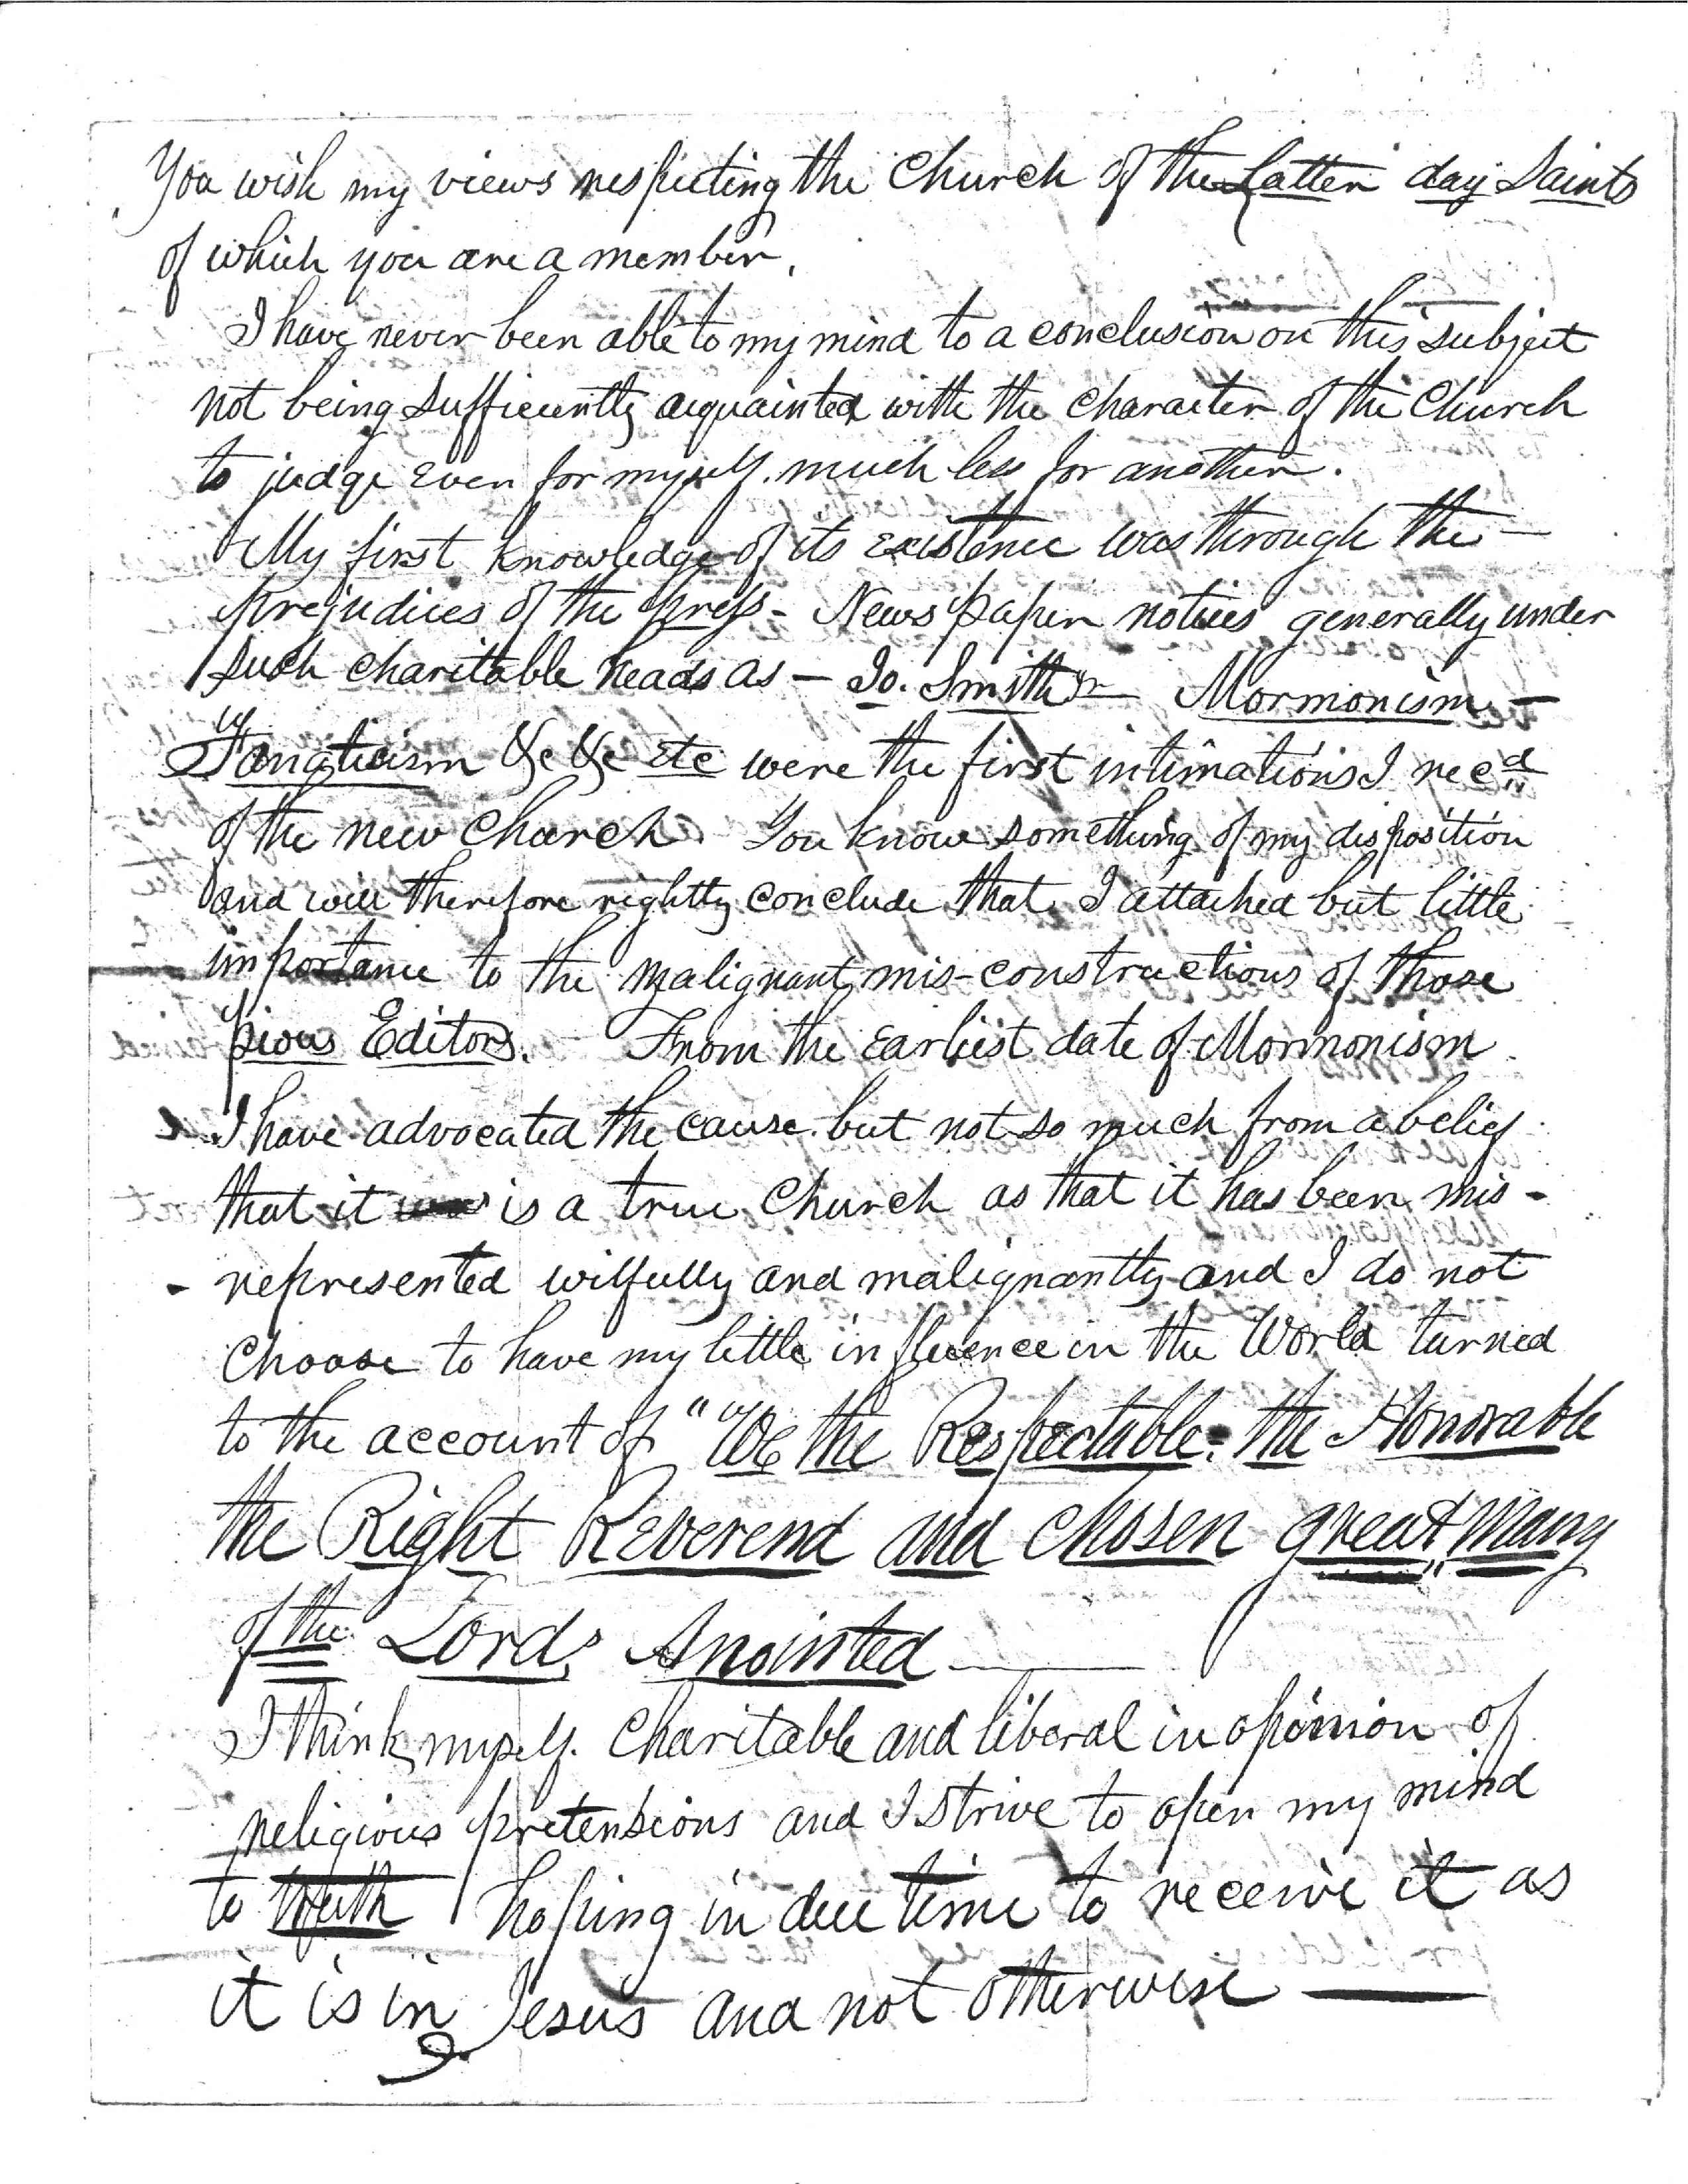 You wish my views respecting the Church of the Latter day Saints
of which you are a member.
I have never been able to my mind to a conclusion on this subject
not being sufficiently acquainted with the character of the Church
to judge even for myself. much less for another.
My first knowledge of its existence was through the —
prejudices of the press - News paper notices generally under
such charitable heads as — Jo. Smith — Mormonism —
Fanaticism &c &c etc were the first intimations I recd
of the new Church. You know something of my disposition
and will therefore rightly conclude that I attached but little
importance to the malignant mis-constructions of those
pious Editors. From the earliest date of Mormonism
I have advocated the cause. but not so much from a belief
that it was is a true Church as that it has been mis -
- represented wilfully and malignantly and I do not
choose to have my little influence in the World turned
to the account of "We the Respectable. the Honorable
the Right Reverend and chosen great many
of the Lords Anointed
I think myself. Charitable and liberal in opinion of
religious pretensions and I strive to open my mind
to truth hoping in due time to receive it as
it is in Jesus and not otherwise —